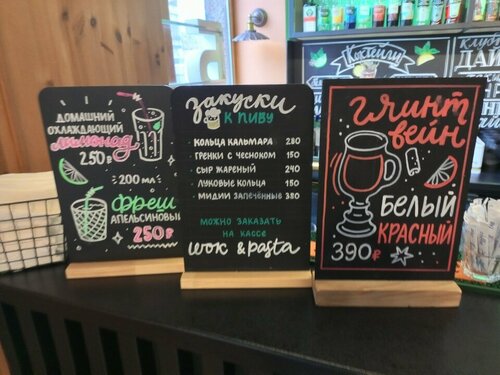 ДОМАШНИЙ
ОХЛАЖДАЮЩИЙ
ЛИМОНАД
250₽
200 МЛ
ФРЕШ
АПЕЛЬСИНОВЫЙ
250₽
Закуски
К ПИВУ
· КОЛЬЦА КАЛЬМАРА 280
· ГРЕНКИ С ЧЕСНОКОМ 150
· СЫР ЖАРЕНЫЙ 240
· ЛУКОВЫЕ КОЛЬЦА 150
· МИДИИ ЗАПЕЧЁННЫЕ 380
МОЖНО ЗАКАЗАТЬ
НА КАССЕ
WOK & PASTA
Глинт
вейн
БЕЛЫЙ
КРАСНЫЙ
390₽
Коктейли